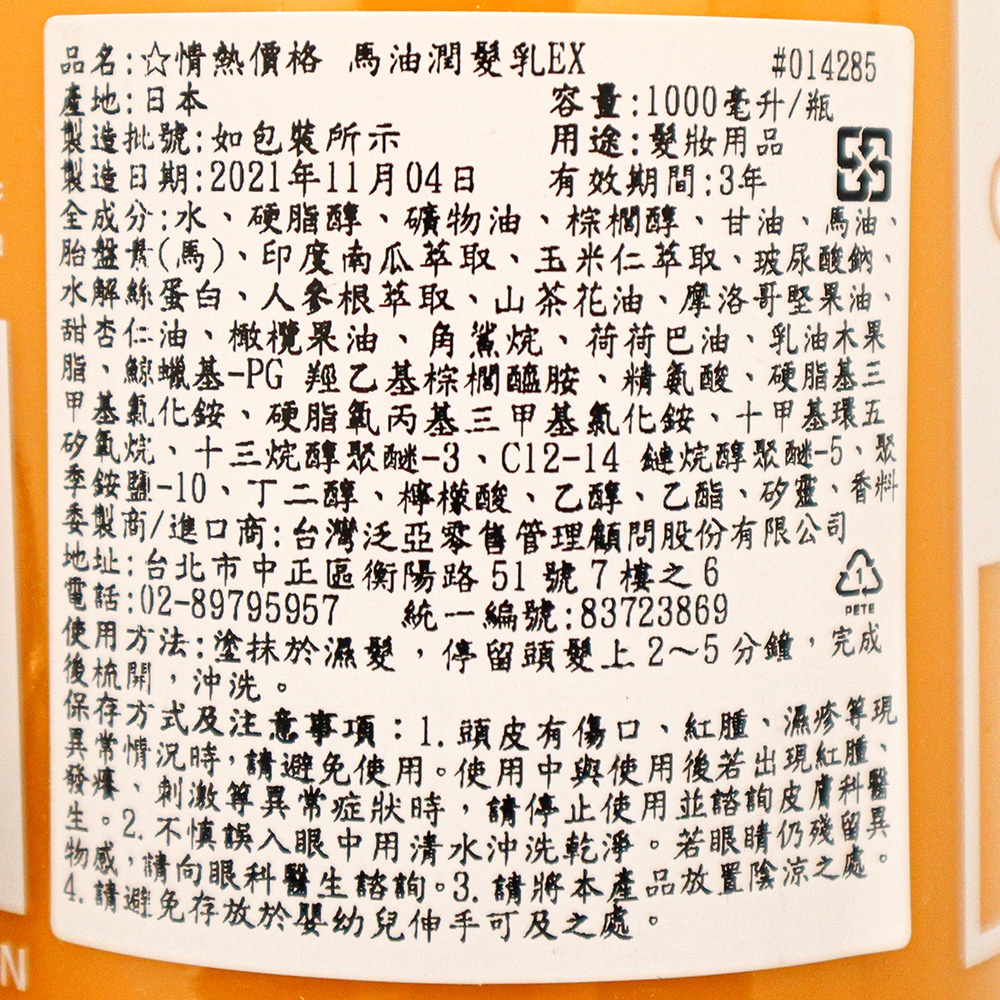 品名:☆情熱價格 馬油潤髮乳EX #014285
產地:日本 容量:1000毫升/瓶
製造批號:如包裝所示 用途:髮妝用品
製造日期:2021年11月04日 有效期間:3年
全成分:水、硬脂醇、礦物油、棕櫚醇、甘油、馬油、
胎盤素(馬)、印度南瓜萃取、玉米仁萃取、玻尿酸鈉、
水解絲蛋白、人參根萃取、山茶花油、摩洛哥堅果油、
甜杏仁油、橄欖果油、角鯊烷、荷荷巴油、乳油木果
脂、鯨蠟基-PG 羥乙基棕櫚醯胺、精氨酸、硬脂基三
甲基氯化銨、硬脂氧丙基三甲基氯化銨、十甲基環五
矽氧烷、十三烷醇聚醚-3、C12-14 鏈烷醇聚醚-5、聚
季銨鹽-10、丁二醇、檸檬酸、乙醇、乙酯、矽靈、香料
委製商/進口商:台灣泛亞零售管理顧問股份有限公司
地址:台北市中正區衡陽路 51 號 7 樓之 6
電話:02-89795957 統一編號:83723869
使用方法:塗抹於濕髮，停留頭髮上 2～5 分鐘，完成
後梳開，沖洗。
保存方式及注意事項：1. 頭皮有傷口、紅腫、濕疹等現
異常情況時,請避免使用。使用中與使用後若出現紅腫、
發癢、刺激等異常症狀時，請停止使用並諮詢皮膚科醫
生。2. 不慎誤入眼中用清水沖洗乾淨。若眼睛仍殘留異
物感,請向眼科醫生諮詢。3. 請將本產品放置陰涼之處。
4. 請避免存放於嬰幼兒伸手可及之處。
1
PETE
N